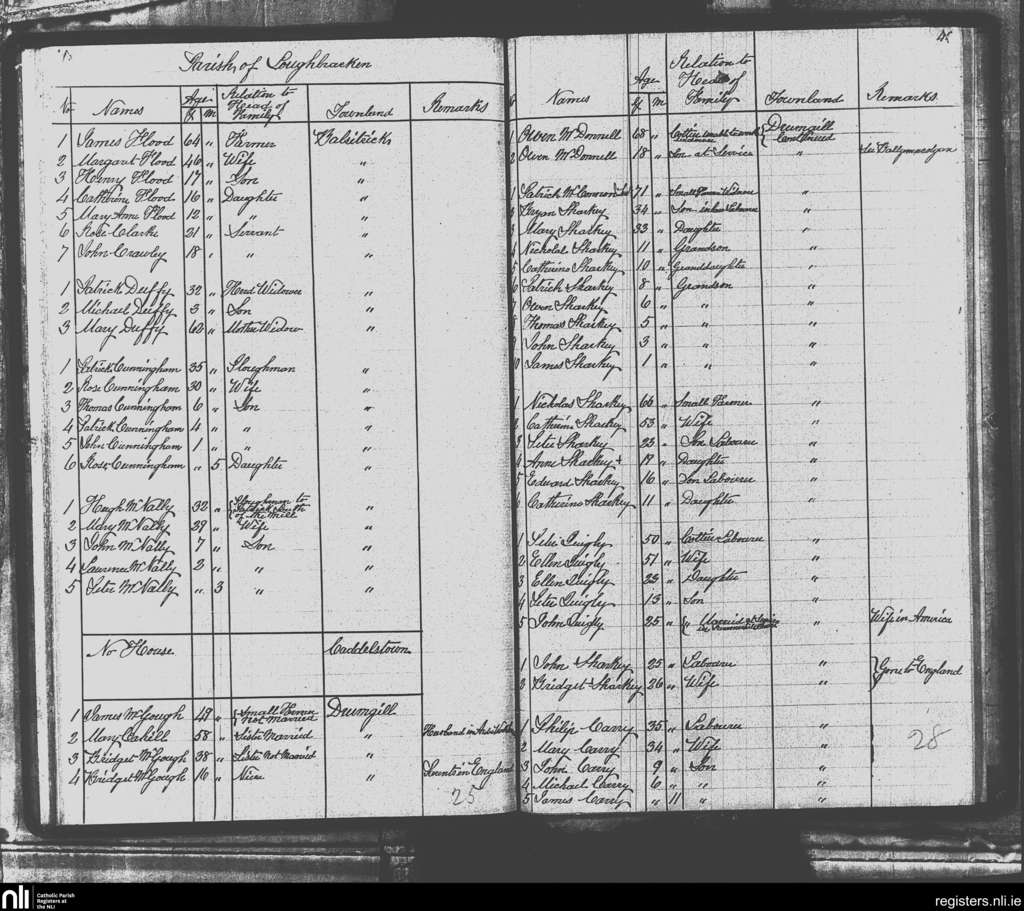 Parish of Loughbracken
No Names Age Y. M Relation to Head of Family Townland Remarks
1 James Flood 64 " Farmer Balsitrick
2 Margaret Flood 46 " Wife "
3 Henry Flood 17 " Son "
4 Catherine Flood 16 " Daughter "
5 Mary Anne Flood 12 " " "
6 Rose Clarke 21 " Servant "
7 John Crawley 18 " " "
1 Patrick Duffy 32 " Head Widower "
2 Michael Duffy 3 " Son "
3 Mary Duffy 60 " Mother Widow "
1 Patrick Cunningham 35 " Ploughman "
2 Rose Cunningham 30 " Wife "
3 Thomas Cunningham 6 " Son "
4 Patrick Cunningham 4 " " "
5 John Cunningham 1 " " "
6 Rose Cunningham " 5 Daughter "
1 Hugh McNally 32 " Ploughman to Patrick of the Mill "
2 Mary McNally 29 " Wife "
3 John McNally 7 " Son "
4 Lawrence McNally 2 " " "
5 Peter McNally " 3 " "
No House Caddelstown
1 James McGough 49 " Small Farmer not Married Drumgill
2 Mary Cahill 58 " Sister Married " Husband in
3 Bridget McGough 38 " Sister Not Married "
4 Bridget McGough 16 " Niece " Parents in England
25
Names Age Y. M Relation to Head of Family Townland Remarks
1 Owen McDonnell 68 " Cottier Drumgill
2 Owen McDonnell 18 " Son at Service "
1 Patrick 71 " Small Farmer Widower "
Bryan Sharkey 34 " Son in law Labourer "
3 Mary Sharkey 33 " Daughter "
4 Nicholas Sharkey 11 " Grandson "
5 Catherine Sharkey 10 " Granddaughter "
6 Patrick Sharkey 8 " Grandson "
7 Owen Sharkey 6 " " "
Thomas Sharkey 5 " " "
9 John Sharkey 3 " " "
10 James Sharkey 1 " " "
1 Nicholas Sharkey 66 " Small Farmer "
2 Catherine Sharkey 53 " Wife "
3 Peter Sharkey 23 " Son Labourer "
4 Anne Sharkey + 17 " Daughter "
5 Edward Sharkey 16 " Son Labourer "
6 Catherine Sharkey 11 " Daughter "
1 Peter Quigly 50 " Cottier Labourer "
2 Ellen Quigly 51 " Wife "
3 Ellen Quigly 23 " Daughter "
4 Peter Quigly 13 " Son "
5 John Quigly 25 " " Married at Service " Wife in America
1 John Sharkey 25 " Labourer " Gone to England
2 Bridget Sharkey 26 " Wife "
1 Philip Carry 35 " Labourer "
2 Mary Carry 34 " Wife "
3 John Carry 9 " Son "
4 Michael Carry 6 " " "
5 James Carry " 11 " "
28
nli Catholic Parish Registers at the NLI
registers.nli.ie